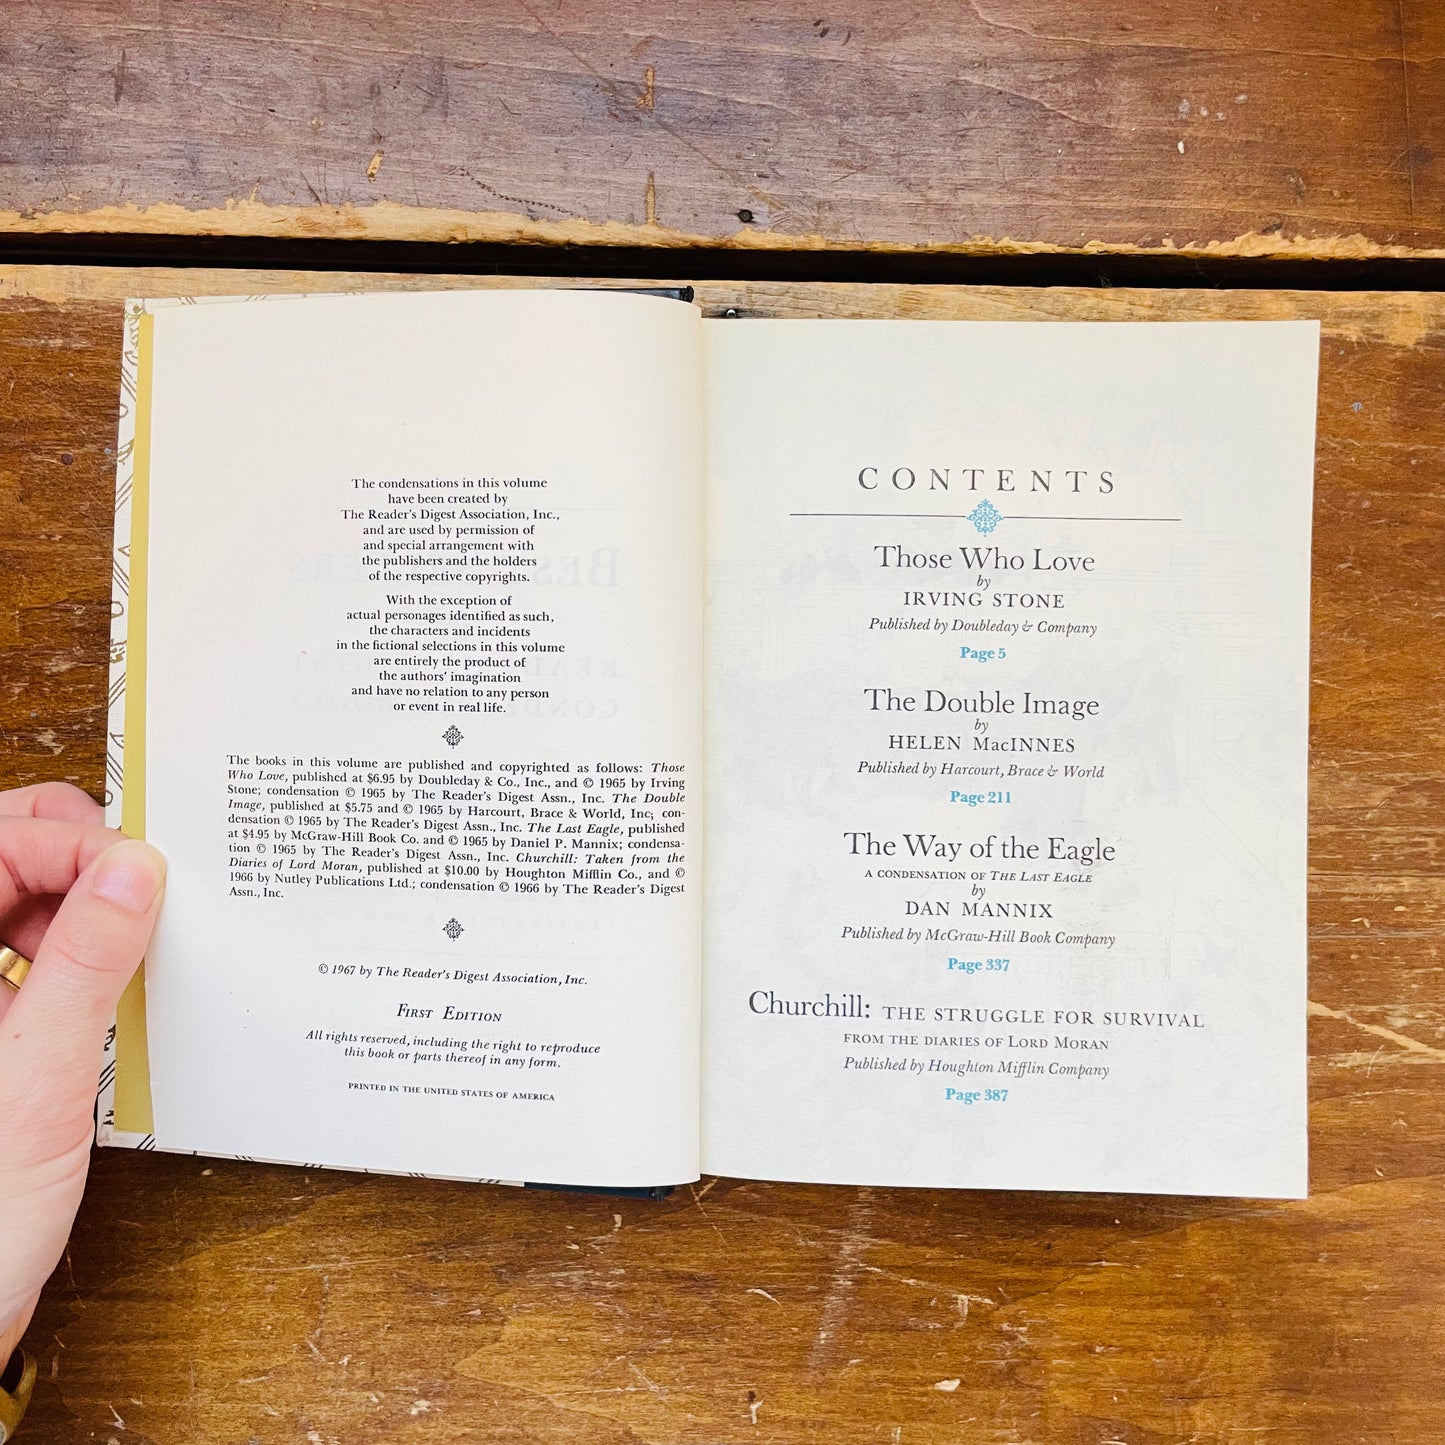 The condensations in this volume
have been created by
The Reader's Digest Association, Inc.,
and are used by permission of
and special arrangement with
the publishers and the holders
of the respective copyrights.
With the exception of
actual personages identified as such,
the characters and incidents
in the fictional selections in this volume
are entirely the product of
the authors' imagination
and have no relation to any person
or event in real life.
The books in this volume are published and copyrighted as follows: Those
Who Love, published at $6.95 by Doubleday & Co., Inc., and © 1965 by Irving
Stone; condensation © 1965 by The Reader's Digest Assn., Inc. The Double
Image, published at $5.75 and © 1965 by Harcourt, Brace & World, Inc; con-
densation © 1965 by The Reader's Digest Assn., Inc. The Last Eagle, published
at $4.95 by McGraw-Hill Book Co. and © 1965 by Daniel P. Mannix; condensa-
tion © 1965 by The Reader's Digest Assn., Inc. Churchill: Taken from the
Diaries of Lord Moran, published at $10.00 by Houghton Mifflin Co., and ©
1966 by Nutley Publications Ltd.; condensation © 1966 by The Reader's Digest
Assn., Inc.
© 1967 by The Reader's Digest Association, Inc.
First Edition
All rights reserved, including the right to reproduce
this book or parts thereof in any form.
PRINTED IN THE UNITED STATES OF AMERICA
CONTENTS
Those Who Love
by
IRVING STONE
Published by Doubleday & Company
Page 5
The Double Image
by
HELEN MacINNES
Published by Harcourt, Brace & World
Page 211
The Way of the Eagle
A CONDENSATION OF THE LAST EAGLE
by
DAN MANNIX
Published by McGraw-Hill Book Company
Page 337
Churchill: THE STRUGGLE FOR SURVIVAL
FROM THE DIARIES OF LORD MORAN
Published by Houghton Mifflin Company
Page 387